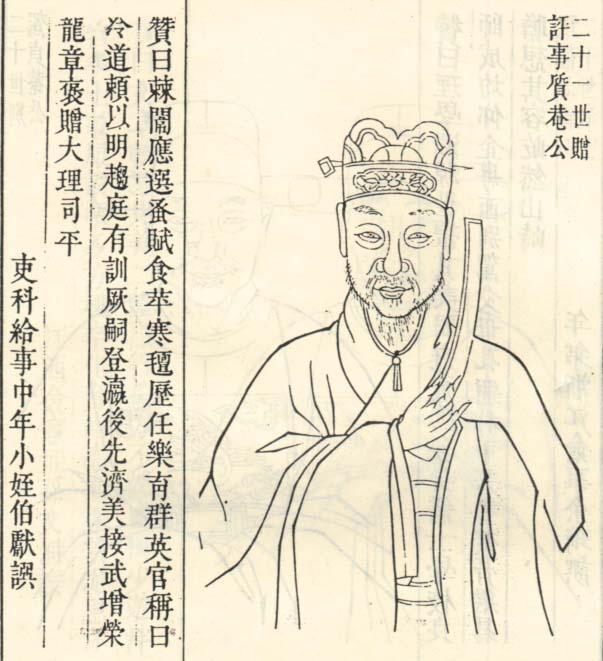 二十一世贈
評事質巷公
贊曰棘闈應選蚤賦食苹寒氊歷任樂育群英官稱曰
冷道賴以明趨庭有訓厥嗣登瀛後先濟美接武增榮
龍章褒贈大理司平
吏科給事中年小姪伯獻譔